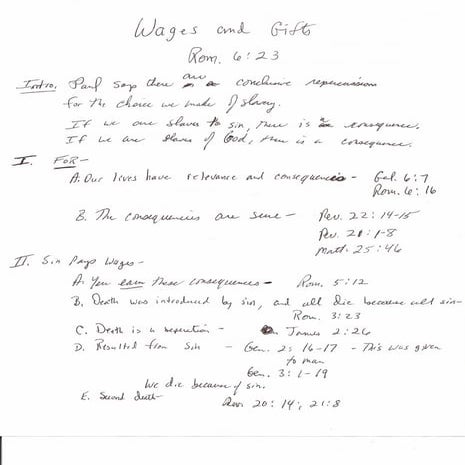 Wages and Gifts
Rom. 6:23
Intro. Paul says there are conclusive repercussions
for the choice we make of slavery.
If we are slaves to sin, there is consequence.
If we are slaves of God, there is a consequence.
I. FOR-
A. Our lives have relevance and consequences - Gal. 6:7
Rom. 6:16
B. The consequences are sure - Rev. 22:14-15
Rev. 21:1-8
Matt. 25:46
II. Sin Pays Wages-
A. You earn these consequences - Rom. 5:12
B. Death was introduced by sin, and all die because all sin-
Rom. 3:23
C. Death is a seperation - James 2:26
D. Resulted from Sin - Gen. 2:16-17 - This was given
to man
Gen. 3:1-19
We die because of sin.
E. Second death- Rev. 20:14; 21:8